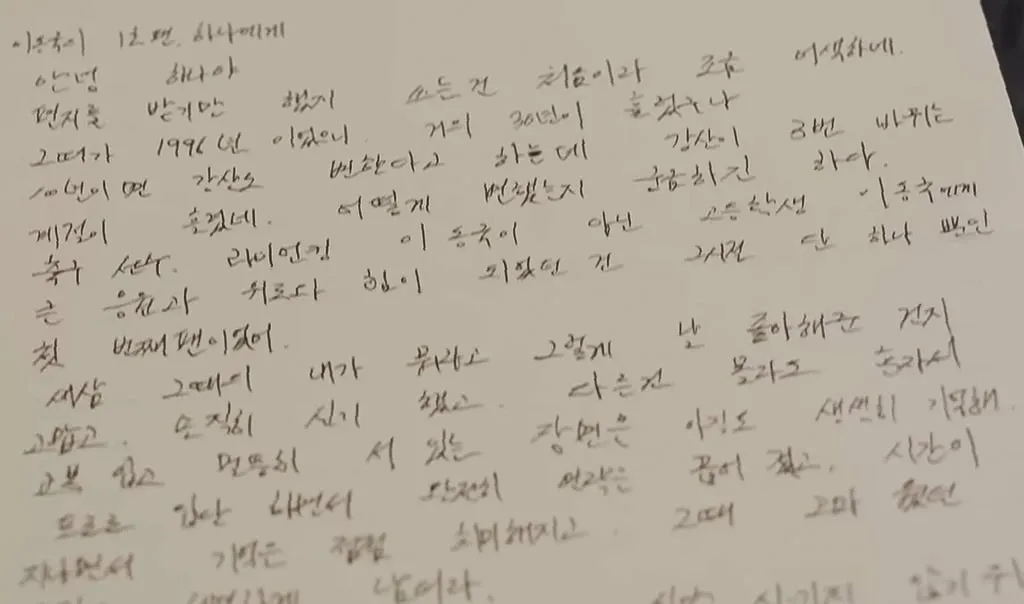 이동국이 1호팬. 하나에게
안녕 하나야
편지를 받기만 했지 쓰는건 처음이라 조금 어색하네.
그때가 1996년 이었으니. 거의 30년이 흘렀구나
10년이면 강산도 변한다고 하는데 강산이 3번 바뀌는
계절이 흘렀네. 어떻게 변했는지 궁금하긴 하다.
축구 선수. 라이언킹 이동국이 아닌 고등학생 이동국에게
큰 응원과 위로다 힘이 되었던 건 그시절 단 하나 뿐인
첫 번째 팬이었어.
새삼 그때의 내가 뭐라고 그렇게 날 좋아해준 건지
고맙고. 솔직히 신기 했고. 다른건 몰라도 혼자서
교복 입고 멀뚱히 서 있는 장면은 아직도 생생히 기억해.
프로로 입단 하면서 완전히 연락은 끊어 졌고. 시간이
지나면서 기억은 점점 희미해지고. 그때 고마 웠던
남더라.